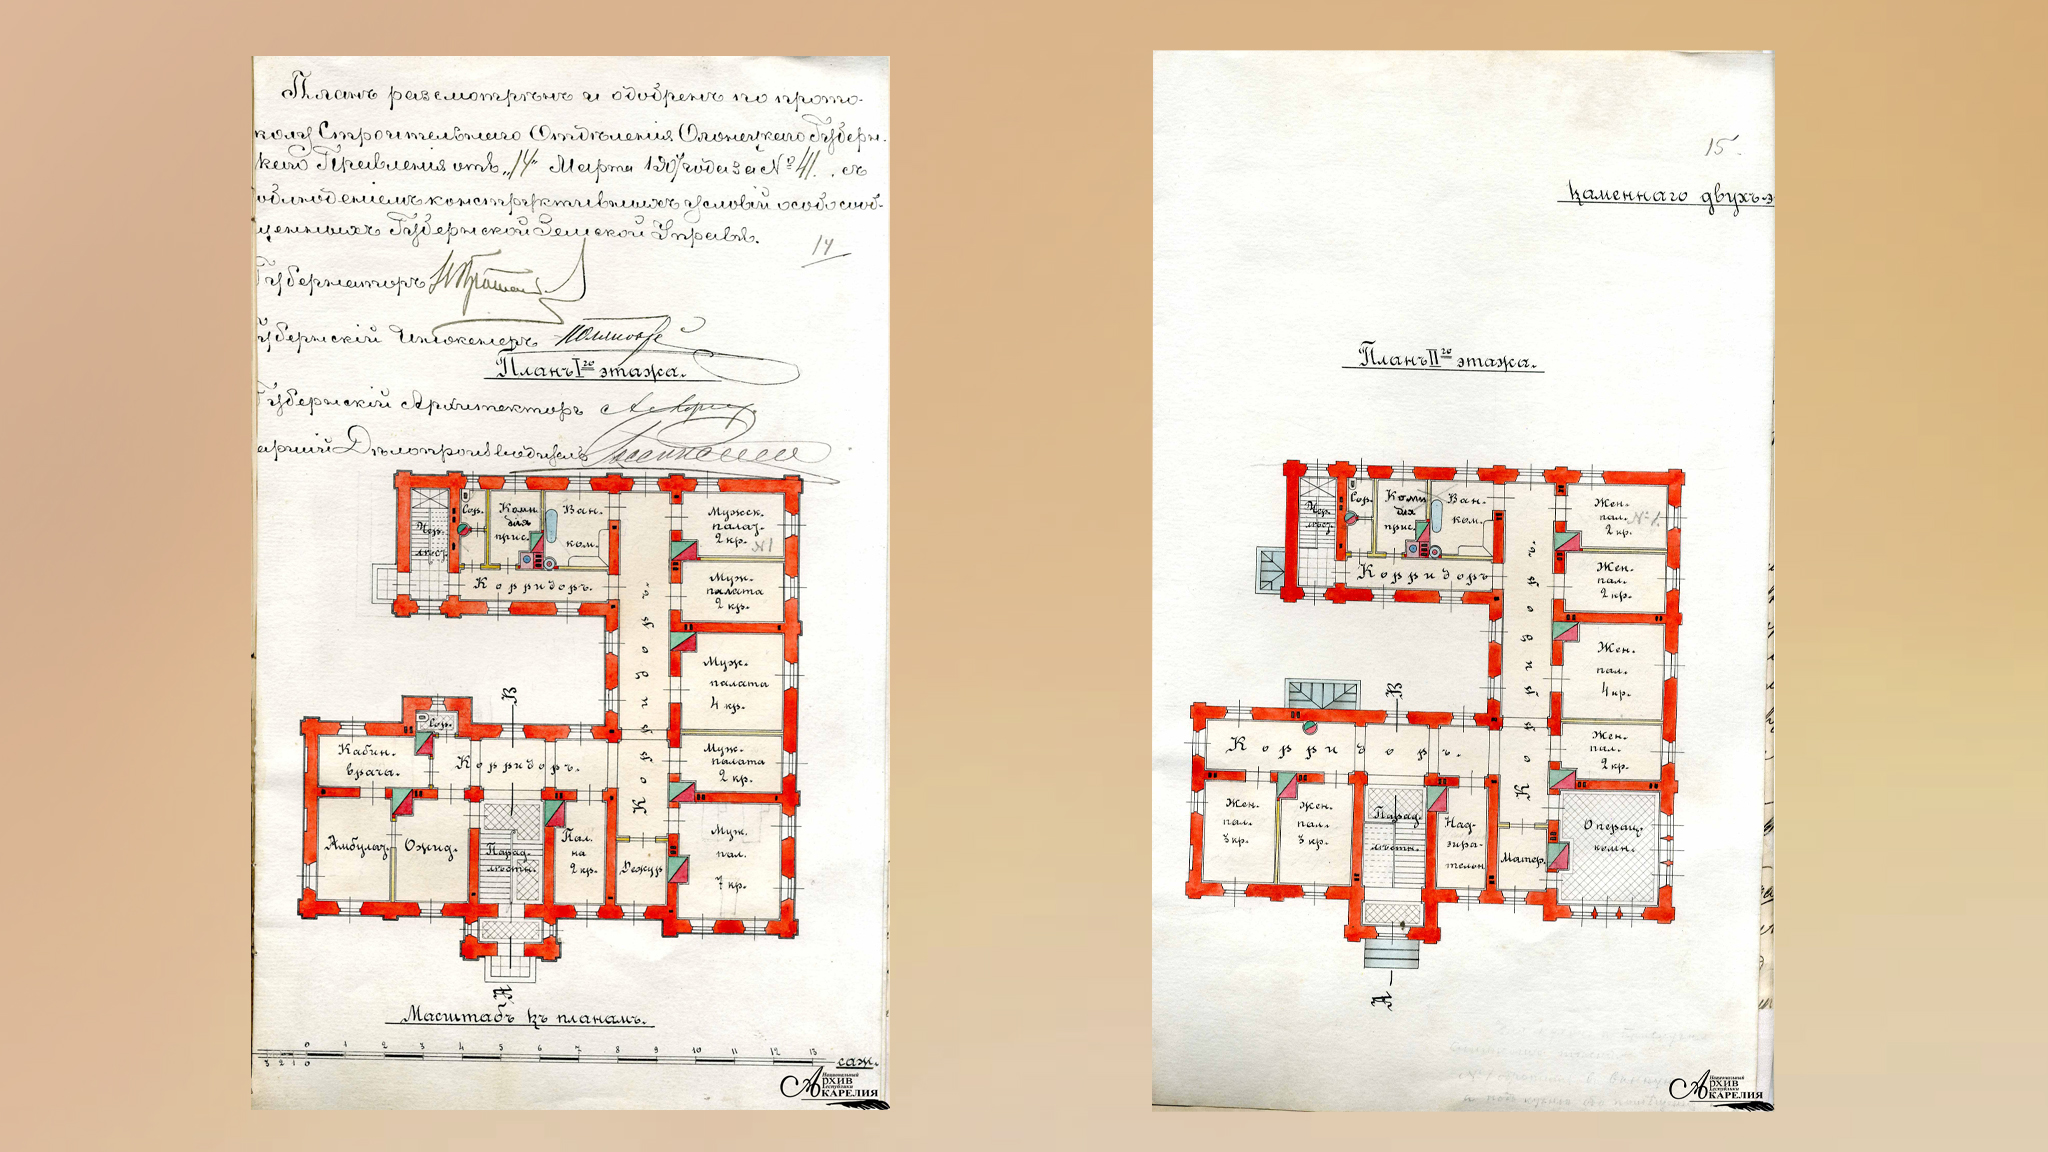 Планъ разсмотрѣнъ и одобренъ по прото-
колу Строительнаго Отдѣленія Олонецкаго Губерн-
скаго Правленія отъ „14" Марта 1907 года за № 41. . съ
облюденіемъ конструктивныхъ условій особо сооб-
щенныхъ Губернской Земской Управѣ.
14
Губернаторъ
Губернскій Инженеръ
Планъ I го этажа.
Губернскій Архитекторъ
арший Дѣлопроизводитель
Чер. лѣст.
Сор.
Комн. для прис.
Ван. ком.
Мужск. палат. 2 кр. №1
Корридоръ.
Муж. палата 2 кр.
Корридоръ.
Муж. палата 4 кр.
В
Сор.
Кабин. врача.
Корридоръ.
Муж. палата 2 кр.
Амбулат.
Ожид.
Парад. лѣстн.
Пал. на 2 кр.
Дежур
Муж. пал. 7 кр.
А
Масштабъ къ планамъ.
3 2 1 0
0 1 2 3 4 5 6 7 8 9 10 11 12 13 саж.
Национальный
АРХИВ
Республики
КАРЕЛИЯ
15.
каменнаго двухъ-э
Планъ II го этажа.
Чер. лѣст.
Сор.
Комн. для прис.
Ван. ком.
Жен. пал. 2 кр. №1.
Корридоръ
Жен. пал. 2 кр.
Корридоръ.
Жен. пал. 4 кр.
В
Корридоръ.
Жен. пал. 2 кр.
Жен. пал. 3 кр.
Жен. пал. 3 кр.
Парад. лѣстн.
Над-зира-тельн
Матер.
Операц. комн.
А
Национальный
АРХИВ
Республики
КАРЕЛИЯ